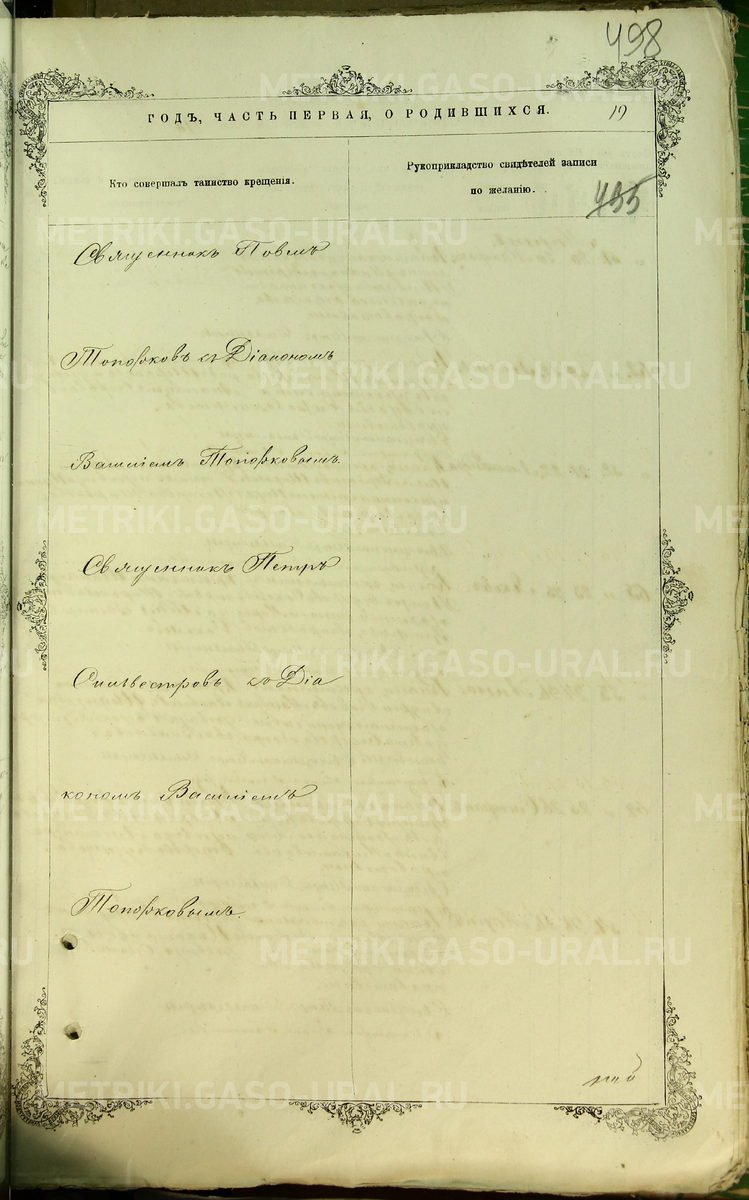 498
ГОДЪ, ЧАСТЬ ПЕРВАЯ, О РОДИВШИХСЯ.
19
Кто совершалъ таинство крещенія.
Рукоприкладство свидѣтелей записи
по желанію.
435
Священникъ Павелъ
Топорковъ съ Діакономъ
Василіемъ Топорковымъ.
Священникъ Петръ
Силивестровъ съ Діа
кономъ Василіемъ
Топорковымъ.
METRIKI.GASO-URAL.RU